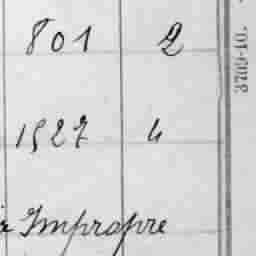 801 2
1527 4
Impropre
3709-10.